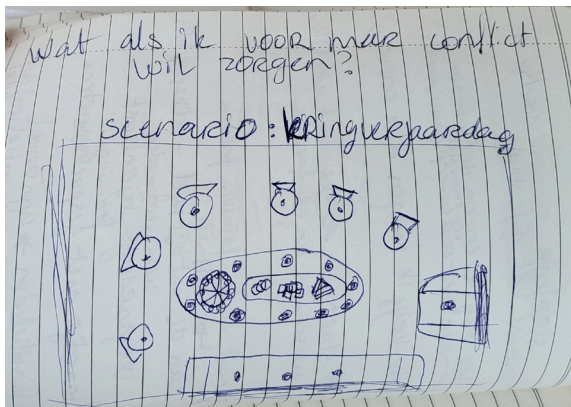 Wat als ik voor meer conflict
wil zorgen?
scenario: kringverjaardag